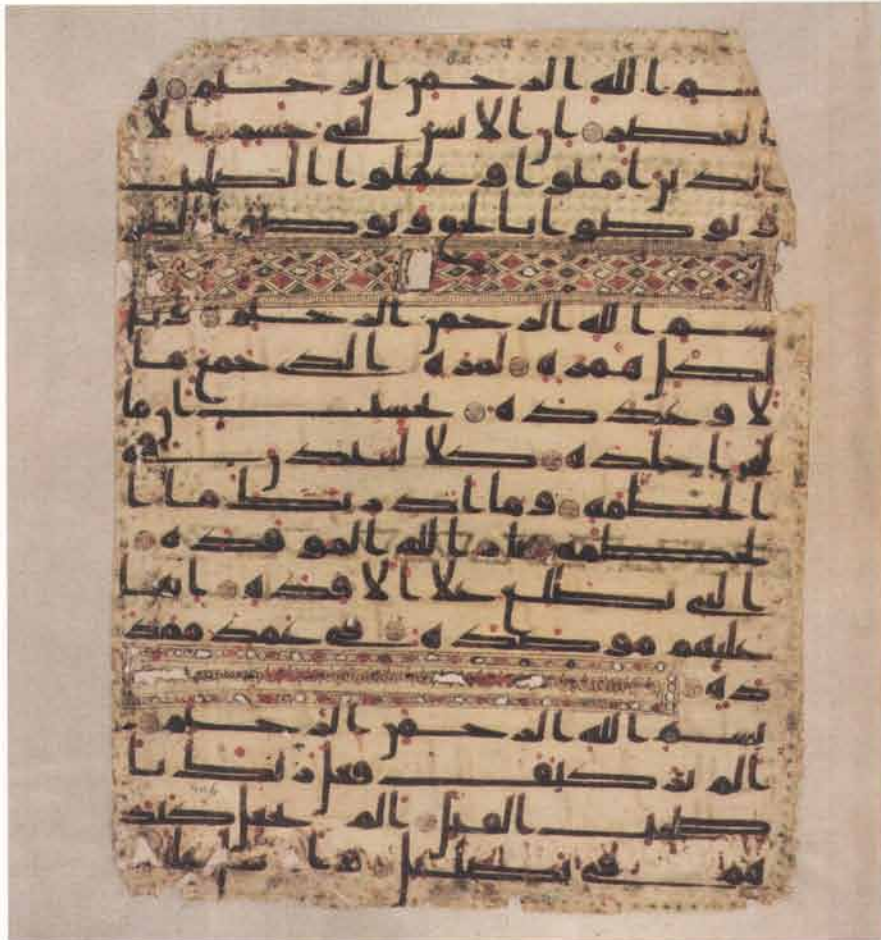 بسم الله الرحمن الرحيم و
العصر ان الانسن لفى خسر الا
الذين امنوا وعملوا الصلحت
و توصوا بالحق وتوصوا بالصبر
بسم الله الرحمن الرحيم ويل
لكل همزة لمزة الذى جمع ما
لا وعدده يحسب ان ما
له اخلده كلا لينبذن فى
الحطمة وما ادريك ما ا
لحطمة نار الله الموقدة
التى تطلع على الافدة انها
عليهم موصدة فى عمد ممد
دة
بسم الله الرحمن الرحيم
الم تر كيف فعل ربك با
صحب الفيل الم يجعل كيد
هم فى تضليل